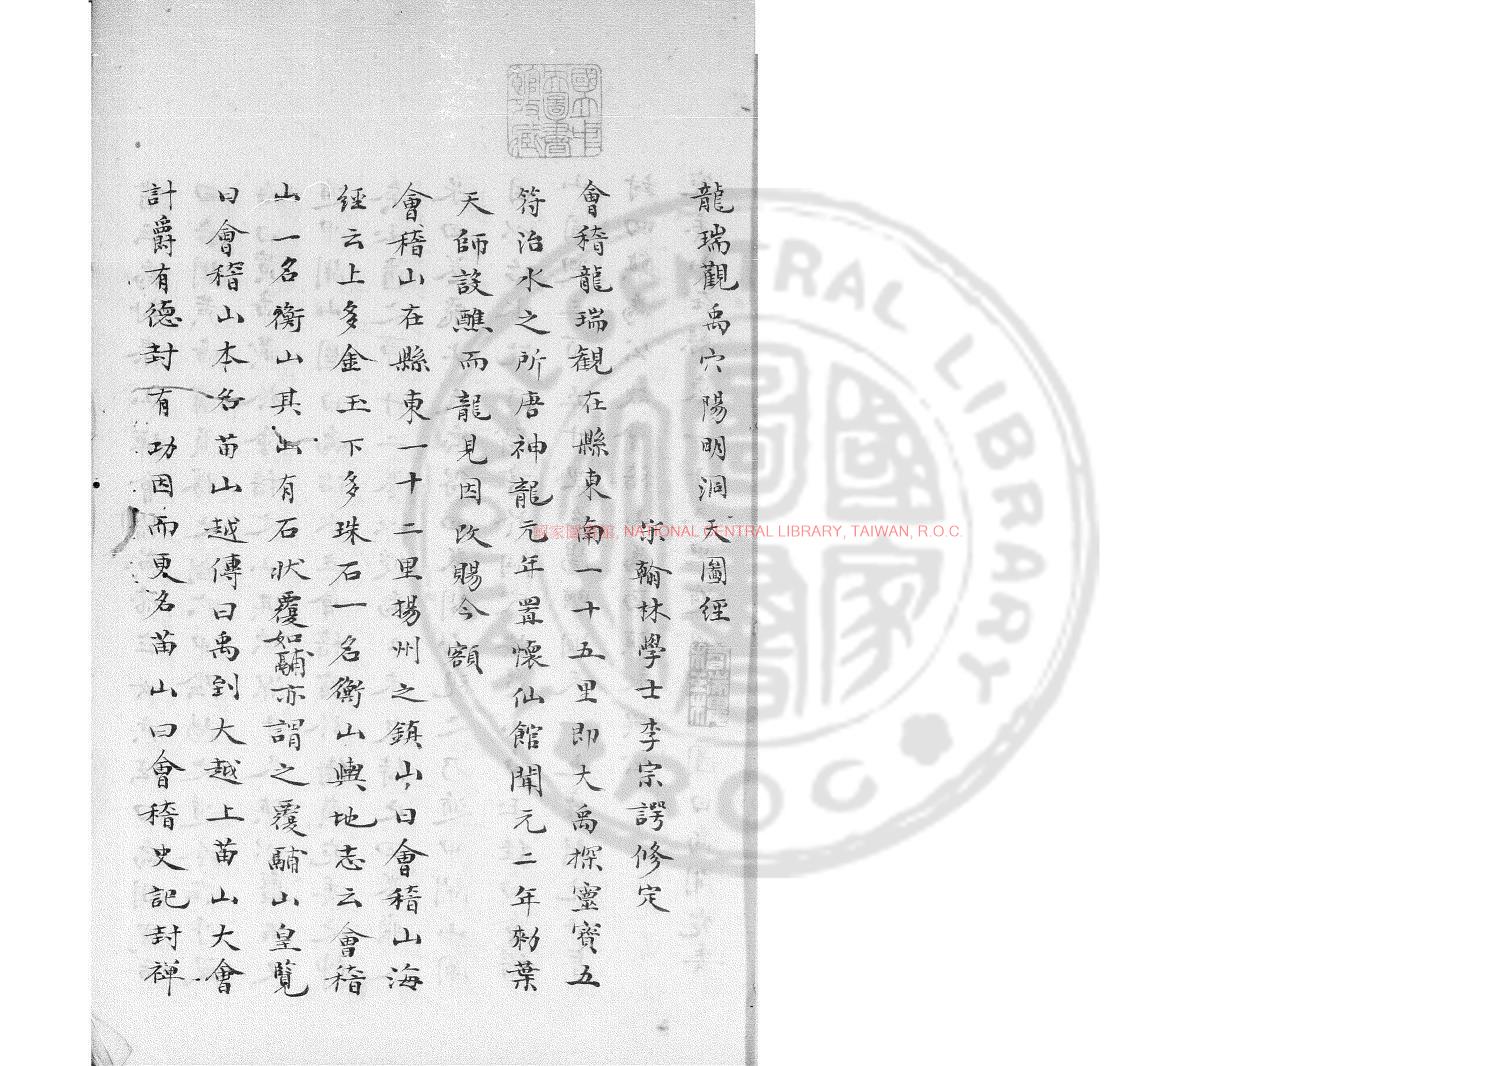 龍瑞觀禹穴陽明洞天圖經
宗翰林學士李宗諤修定
會稽龍瑞観在縣東南一十五里即大禹探靈寳五
符治水之所唐神龍元年置懷仙館開元二年勑葉
天師設醮而龍見因改賜今額
會稽山在縣東一十二里揚州之鎮山曰會稽山海
經云上多金玉下多珠石一名衡山輿地志云會稽
山一名衡山其山有石狀覆如鬴亦謂之覆鬴山皇覽
曰會稽山本名苗山越傳曰禹到大越上苗山大會
計爵有德封有功因而更名苗山曰會稽史記封禅
國立中央圖書館收藏
國家圖書館, NATIONAL CENTRAL LIBRARY, TAIWAN, R.O.C.
NATIONAL CENTRAL LIBRARY
R.O.C.